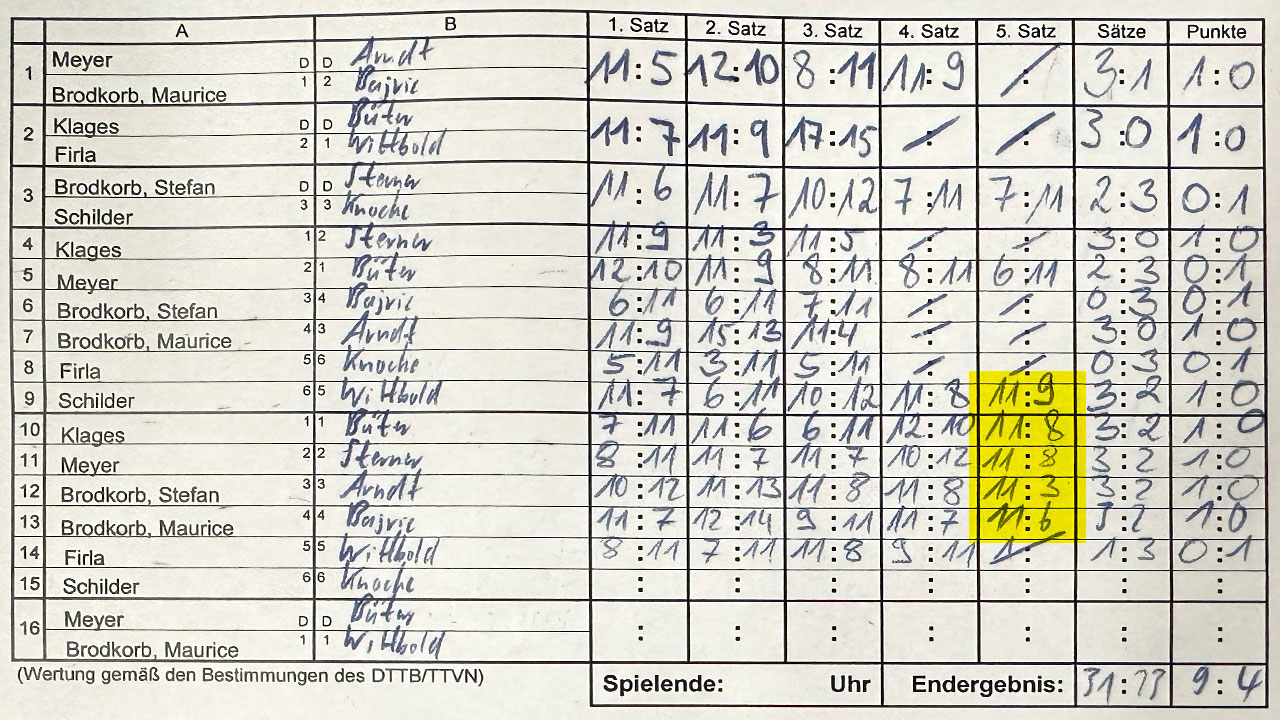 A B 1. Satz 2. Satz 3. Satz 4. Satz 5. Satz Sätze Punkte
1 Meyer D D Arndt 11:5 12:10 8:11 11:9 / 3:1 1:0
Brodkorb, Maurice 1 2 Bajric
2 Klages D D Büter 11:7 11:9 17:15 / / 3:0 1:0
Firla 2 1 Wittbold
3 Brodkorb, Stefan D D Sterner 11:6 11:7 10:12 7:11 7:11 2:3 0:1
Schilder 3 3 Knoche
4 Klages 1 2 Sterner 11:9 11:3 11:5 / / 3:0 1:0
5 Meyer 2 1 Büter 12:10 11:9 8:11 8:11 6:11 2:3 0:1
6 Brodkorb, Stefan 3 4 Bajric 6:11 6:11 7:11 / / 0:3 0:1
7 Brodkorb, Maurice 4 3 Arndt 11:9 15:13 11:4 / / 3:0 1:0
8 Firla 5 6 Knoche 5:11 3:11 5:11 / / 0:3 0:1
9 Schilder 6 5 Wittbold 11:7 6:11 10:12 11:8 11:9 3:2 1:0
10 Klages 1 1 Büter 7:11 11:6 6:11 12:10 11:8 3:2 1:0
11 Meyer 2 2 Sterner 8:11 11:7 11:7 10:12 11:8 3:2 1:0
12 Brodkorb, Stefan 3 3 Arndt 10:12 11:13 11:8 11:8 11:3 3:2 1:0
13 Brodkorb, Maurice 4 4 Bajric 11:7 12:14 9:11 11:7 11:6 3:2 1:0
14 Firla 5 5 Wittbold 8:11 7:11 11:8 9:11 / 1:3 0:1
15 Schilder 6 6 Knoche : : : : : : :
16 Meyer D D Büter : : : : : : :
Brodkorb, Maurice 1 1 Wittbold
(Wertung gemäß den Bestimmungen des DTTB/TTVN) Spielende: Uhr Endergebnis: 31:23 9:4